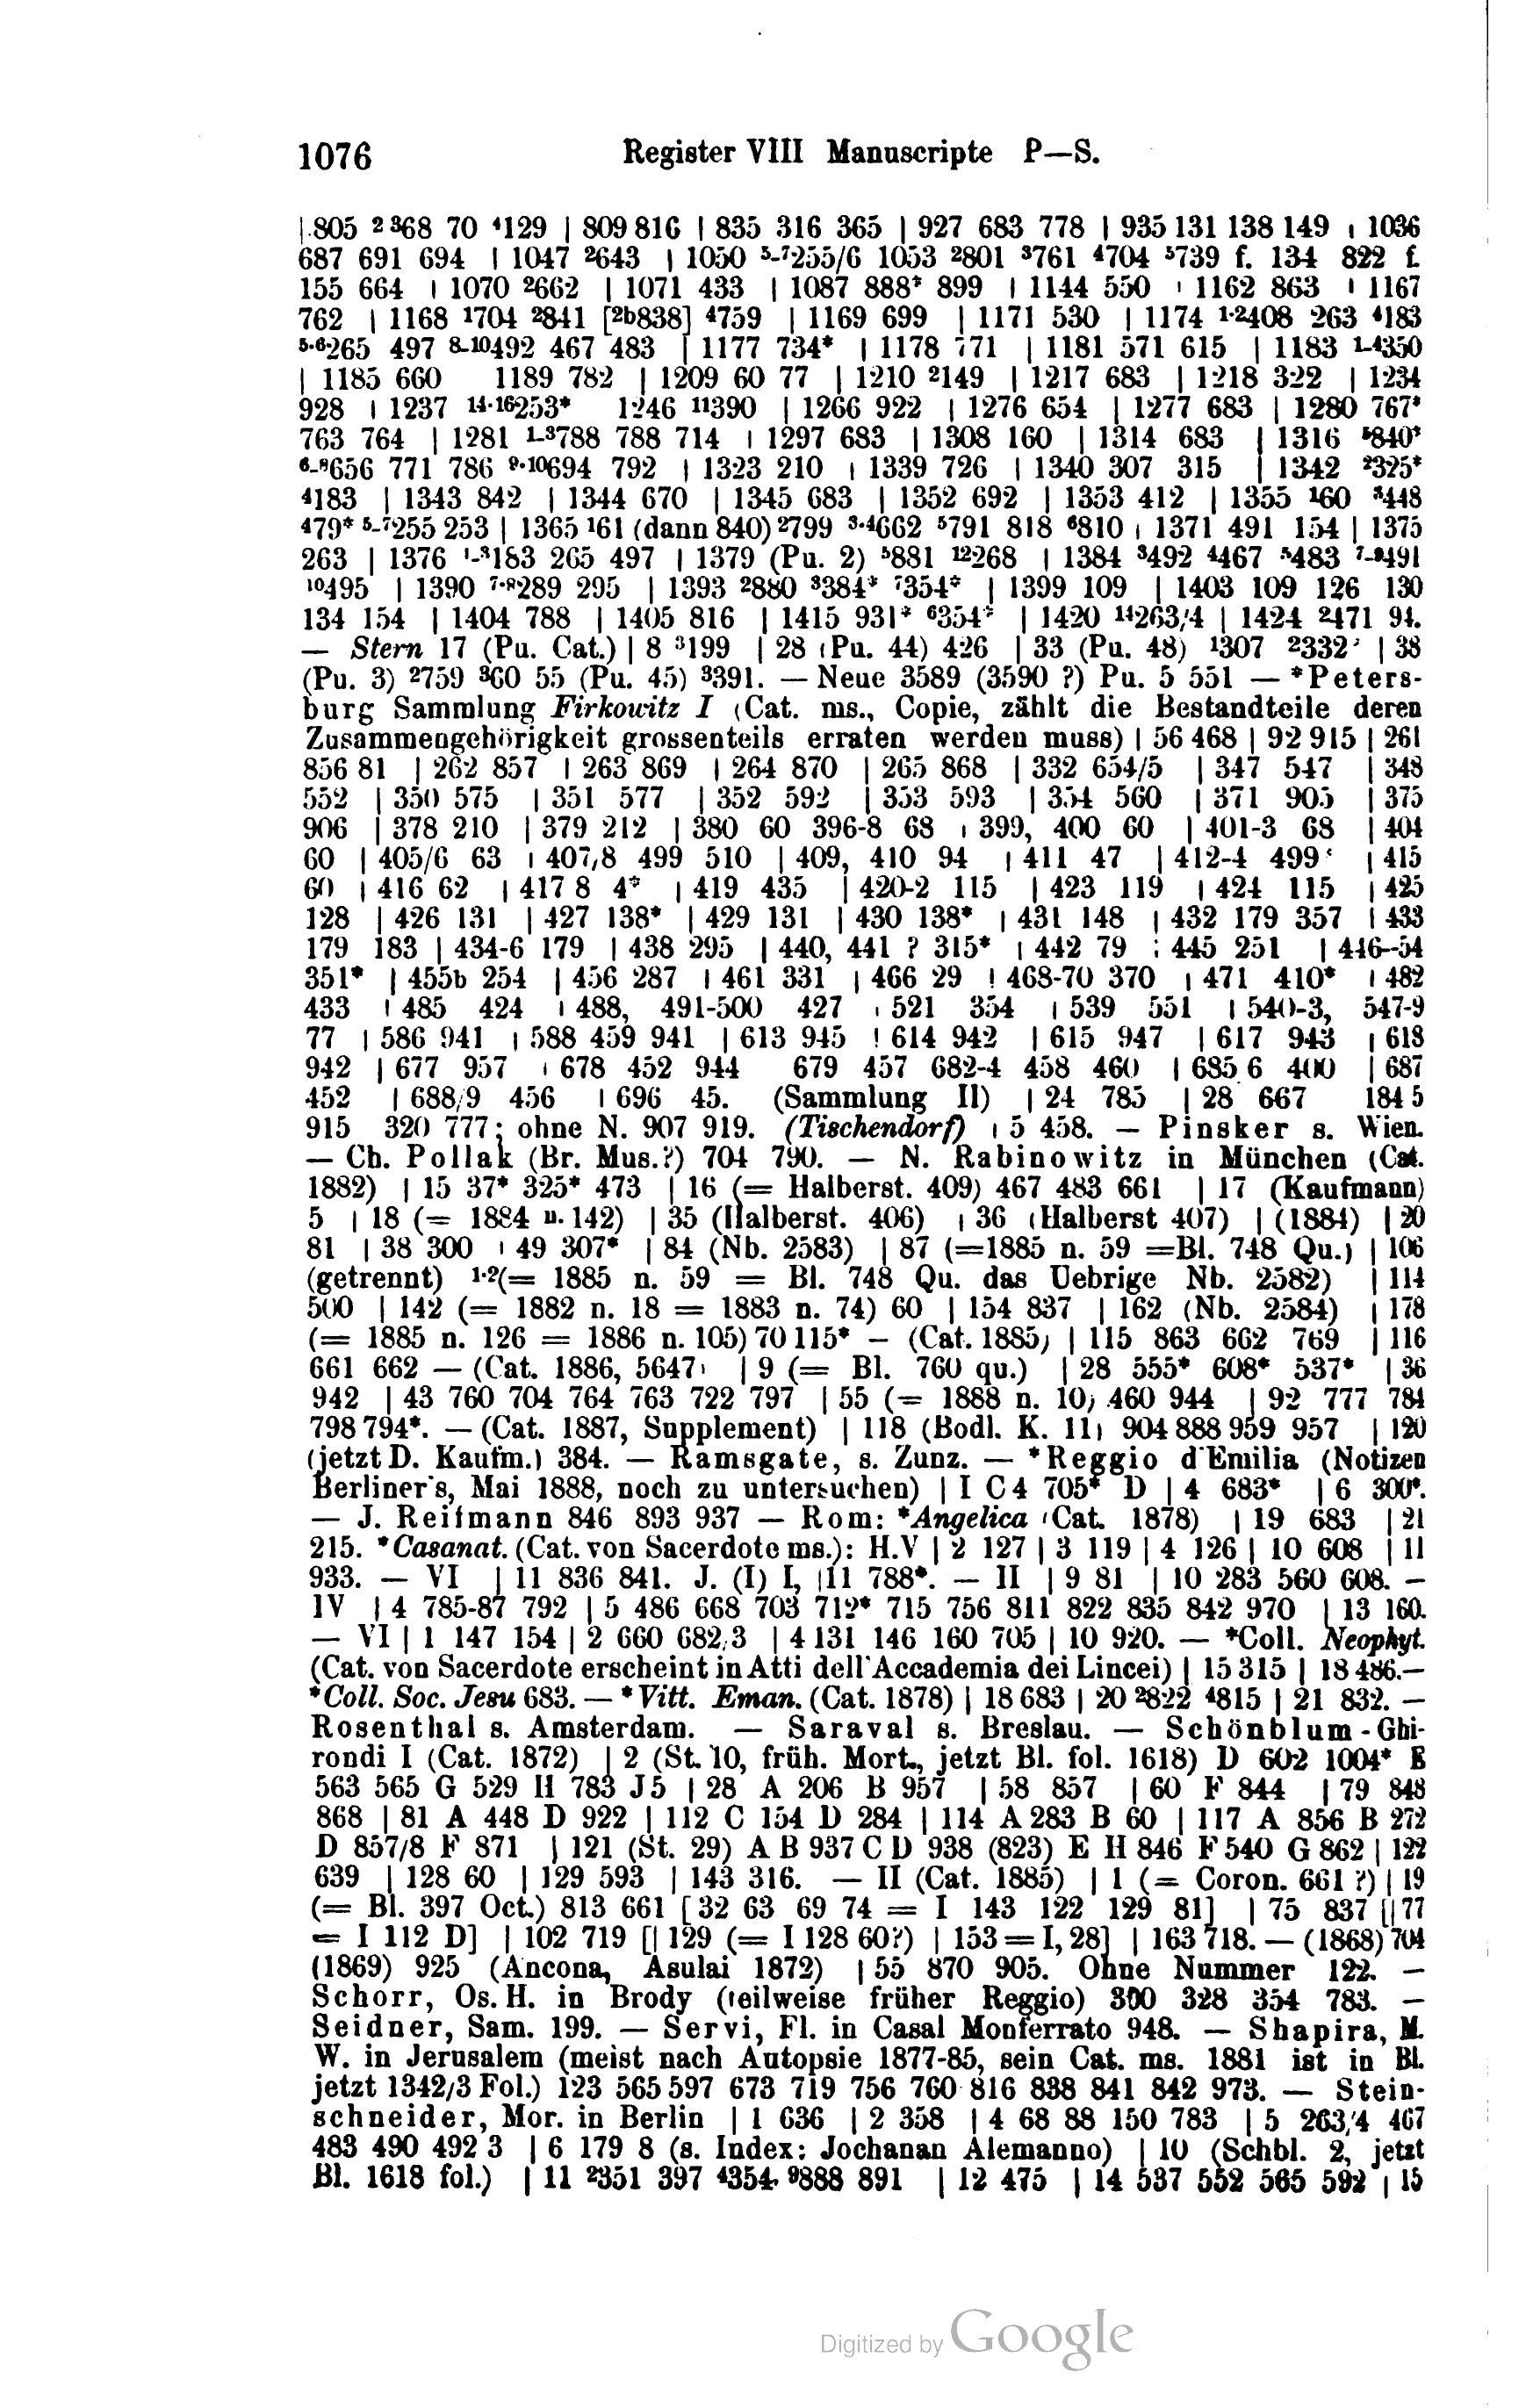 1076 Register VIII Manuscripte P—S.
| 805 ²368 70 ⁴129 | 809 816 | 835 316 365 | 927 683 778 | 935 131 138 149 | 1036
687 691 694 | 1047 ²643 | 1050 ⁵-⁷255/6 1053 ²801 ³761 ⁴704 ⁵739 f. 134 822 f.
155 664 | 1070 ²662 | 1071 433 | 1087 888* 899 | 1144 550 | 1162 863 | 1167
762 | 1168 ¹704 ²841 [²b838] ⁴759 | 1169 699 | 1171 530 | 1174 ¹·²408 263 ⁴183
⁵·⁶265 497 ⁸-¹⁰492 467 483 | 1177 734* | 1178 771 | 1181 571 615 | 1183 ¹-⁴350
| 1185 660 1189 782 | 1209 60 77 | 1210 ²149 | 1217 683 | 1218 322 | 1234
928 | 1237 ¹⁴·¹⁶253* 1246 ¹¹390 | 1266 922 | 1276 654 | 1277 683 | 1280 767*
763 764 | 1281 ¹-³788 788 714 | 1297 683 | 1308 160 | 1314 683 | 1316 ⁵840*
⁶-⁸656 771 786 ⁹·¹⁰694 792 | 1323 210 | 1339 726 | 1340 307 315 | 1342 ²325*
⁴183 | 1343 842 | 1344 670 | 1345 683 | 1352 692 | 1353 412 | 1355 ¹60 ³448
479* ⁵-⁷255 253 | 1365 ¹61 (dann 840) ²799 ³·⁴662 ⁵791 818 ⁶810 | 1371 491 154 | 1375
263 | 1376 ¹-³183 265 497 | 1379 (Pu. 2) ⁵881 ¹²268 | 1384 ³492 ⁴467 ⁵483 ⁷-⁹491
¹⁰495 | 1390 ⁷·⁸289 295 | 1393 ²880 ³384* ⁷354* | 1399 109 | 1403 109 126 130
134 154 | 1404 788 | 1405 816 | 1415 931* ⁶354* | 1420 ¹⁴263/4 | 1424 ²471 94.
— Stern 17 (Pu. Cat.) | 8 ³199 | 28 (Pu. 44) 426 | 33 (Pu. 48) ¹307 ²332* | 38
(Pu. 3) ²759 ³60 55 (Pu. 45) ³391. — Neue 3589 (3590 ?) Pu. 5 551 — *Peters-
burg Sammlung Firkowitz I (Cat. ms., Copie, zählt die Bestandteile deren
Zusammengehörigkeit grossenteils erraten werden muss) | 56 468 | 92 915 | 261
856 81 | 262 857 | 263 869 | 264 870 | 265 868 | 332 654/5 | 347 547 | 348
552 | 350 575 | 351 577 | 352 592 | 353 593 | 354 560 | 371 905 | 375
906 | 378 210 | 379 212 | 380 60 396-8 68 | 399, 400 60 | 401-3 68 | 404
60 | 405/6 63 | 407/8 499 510 | 409, 410 94 | 411 47 | 412-4 499* | 415
60 | 416 62 | 417 8 4* | 419 435 | 420-2 115 | 423 119 | 424 115 | 425
128 | 426 131 | 427 138* | 429 131 | 430 138* | 431 148 | 432 179 357 | 433
179 183 | 434-6 179 | 438 295 | 440, 441 ? 315* | 442 79 | 445 251 | 446-54
351* | 455b 254 | 456 287 | 461 331 | 466 29 | 468-70 370 | 471 410* | 482
433 | 485 424 | 488, 491-500 427 | 521 354 | 539 551 | 540-3, 547-9
77 | 586 941 | 588 459 941 | 613 945 | 614 942 | 615 947 | 617 943 | 618
942 | 677 957 | 678 452 944 679 457 682-4 458 460 | 685 6 400 | 687
452 | 688/9 456 | 696 45. (Sammlung II) | 24 785 | 28 667 184 5
915 320 777; ohne N. 907 919. (Tischendorf) | 5 458. — Pinsker s. Wien.
— Ch. Pollak (Br. Mus.?) 704 790. — N. Rabinowitz in München (Cat.
1882) | 15 37* 325* 473 | 16 (= Halberst. 409) 467 483 661 | 17 (Kaufmann)
5 | 18 (= 1884 n. 142) | 35 (Halberst. 406) | 36 (Halberst 407) | (1884) | 20
81 | 38 300 | 49 307* | 84 (Nb. 2583) | 87 (=1885 n. 59 =Bl. 748 Qu.) | 106
(getrennt) ¹·²(= 1885 n. 59 = Bl. 748 Qu. das Uebrige Nb. 2582) | 114
500 | 142 (= 1882 n. 18 = 1883 n. 74) 60 | 154 837 | 162 (Nb. 2584) | 178
(= 1885 n. 126 = 1886 n. 105) 70 115* — (Cat. 1885) | 115 863 662 769 | 116
661 662 — (Cat. 1886, 5647) | 9 (= Bl. 760 qu.) | 28 555* 608* 537* | 36
942 | 43 760 704 764 763 722 797 | 55 (= 1888 n. 10) 460 944 | 92 777 784
798 794*. — (Cat. 1887, Supplement) | 118 (Bodl. K. 11) 904 888 959 957 | 120
(jetzt D. Kaufm.) 384. — Ramsgate, s. Zunz. — *Reggio d'Emilia (Notizen
Berliner's, Mai 1888, noch zu untersuchen) | I C 4 705* D | 4 683* | 6 300*.
— J. Reifmann 846 893 937 — Rom: *Angelica (Cat. 1878) | 19 683 | 21
215. *Casanat. (Cat. von Sacerdote ms.): H.V | 2 127 | 3 119 | 4 126 | 10 608 | 11
933. — VI | 11 836 841. J. (I) I, |11 788*. — II | 9 81 | 10 283 560 608. —
IV | 4 785-87 792 | 5 486 668 703 712* 715 756 811 822 835 842 970 | 13 160.
— VI | 1 147 154 | 2 660 682/3 | 4 131 146 160 705 | 10 920. — *Coll. Neophyt.
(Cat. von Sacerdote erscheint in Atti dell'Accademia dei Lincei) | 15 315 | 18 486.—
*Coll. Soc. Jesu 683. — *Vitt. Eman. (Cat. 1878) | 18 683 | 20 ²822 ⁴815 | 21 832. —
Rosenthal s. Amsterdam. — Saraval s. Breslau. — Schönblum-Ghi-
rondi I (Cat. 1872) | 2 (St. 10, früh. Mort., jetzt Bl. fol. 1618) D 602 1004* E
563 565 G 529 H 783 J 5 | 28 A 206 B 957 | 58 857 | 60 F 844 | 79 848
868 | 81 A 448 D 922 | 112 C 154 D 284 | 114 A 283 B 60 | 117 A 856 B 272
D 857/8 F 871 | 121 (St. 29) A B 937 C D 938 (823) E H 846 F 540 G 862 | 122
639 | 128 60 | 129 593 | 143 316. — II (Cat. 1885) | 1 (= Coron. 661 ?) | 19
(= Bl. 397 Oct.) 813 661 [32 63 69 74 = I 143 122 129 81] | 75 837 [| 77
= I 112 D] | 102 719 [| 129 (= I 128 60?) | 153 = I, 28] | 163 718. — (1868) 704
(1869) 925 (Ancona, Asulai 1872) | 55 870 905. Ohne Nummer 122. —
Schorr, Os. H. in Brody (teilweise früher Reggio) 300 328 354 783. —
Seidner, Sam. 199. — Servi, Fl. in Casal Monferrato 948. — Shapira, M.
W. in Jerusalem (meist nach Autopsie 1877-85, sein Cat. ms. 1881 ist in Bl.
jetzt 1342/3 Fol.) 123 565 597 673 719 756 760 816 838 841 842 973. — Stein-
schneider, Mor. in Berlin | 1 636 | 2 358 | 4 68 88 150 783 | 5 263/4 467
483 490 492 3 | 6 179 8 (s. Index: Jochanan Alemanno) | 10 (Schbl. 2, jetzt
Bl. 1618 fol.) | 11 ²351 397 ⁴354 ⁹888 891 | 12 475 | 14 537 552 565 592 | 15
Digitized by Google